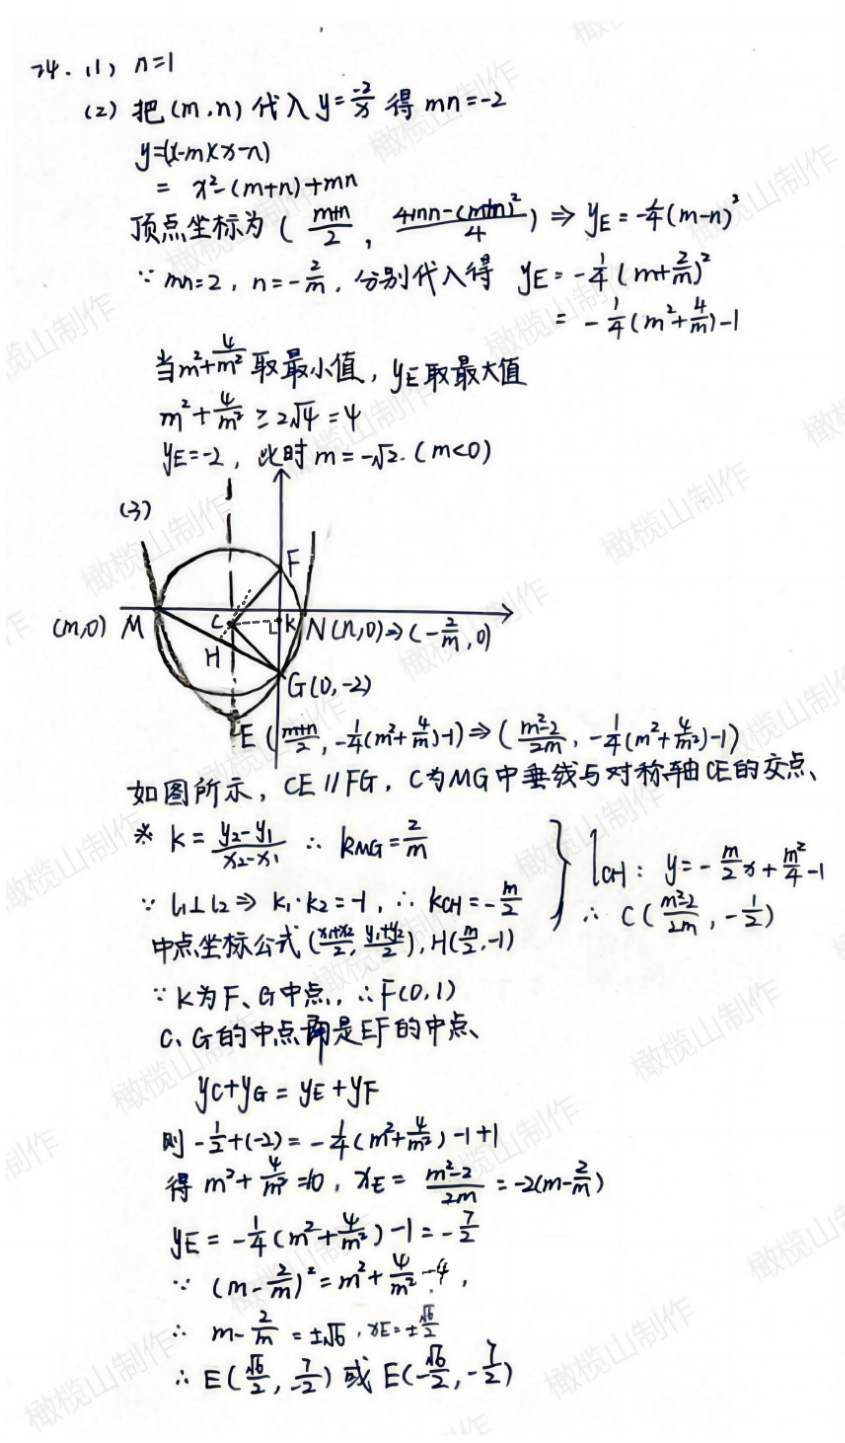 24. (1) n=1
(2) 把(m,n)代入y=-2/x 得 mn=-2
y=(x-m)(x-n)
= x²-(m+n)+mn
顶点坐标为( (m+n)/2 , (4mn-(m+n)²)/4 ) ⇒ yE = -1/4(m-n)²
∵ mn=2, n=-2/m, 分别代入得 yE = -1/4(m+2/m)²
= -1/4(m²+4/m)-1
当m²+4/m² 取最小值, yE取最大值
m²+4/m² ≥ 2√4 = 4
yE=-2, 此时 m=-√2. (m<0)
(3)
F
(m,0) M C K N(n,0)⇒(-2/m,0)
H
G(0,-2)
E( (m+n)/2, -1/4(m²+4/m)-1)⇒( (m²-2)/2m, -1/4(m²+4/m²)-1)
如图所示, CE∥FG, C为MG中垂线与对称轴CE的交点、
※ k=(y2-y1)/(x2-x1) ∴ kMG=2/m
lCH: y=-m/2 x+m²/4-1
∵ l1⊥l2⇒ k1·k2=-1, ∴ kCH=-m/2
∴ C( (m²-2)/2m, -1/2)
中点坐标公式( (x1+x2)/2, (y1+y2)/2 ), H(m/2,-1)
∵ K为F、G中点, ∴F(0,1)
C、G的中点即是EF的中点、
yC+yG=yE+yF
则 -1/2+(-2)=-1/4(m²+4/m²)-1+1
得 m²+4/m²=10, xE=(m²-2)/2m=-2(m-2/m)
yE=-1/4(m²+4/m²)-1=-7/2
∵ (m-2/m)²=m²+4/m²-4,
∴ m-2/m=±√6, xE=±√6/2
∴ E(√6/2, -7/2)或E(-√6/2,-7/2)
橄榄山制作